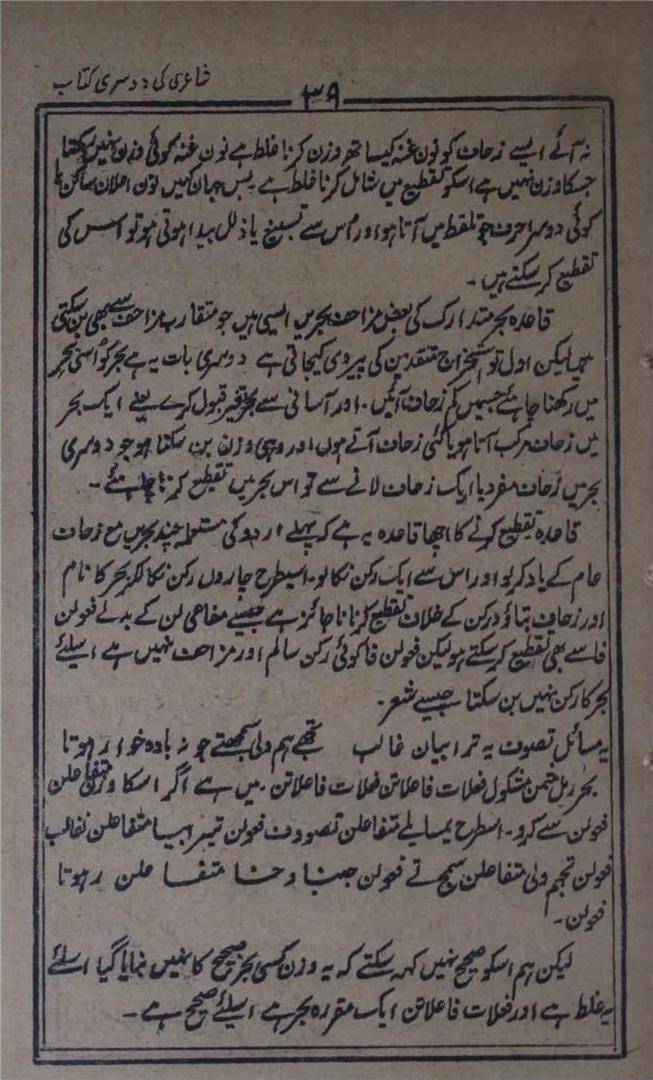 شاعری کی دوسری کتاب
۳۹
نہ آئے ایسے زحاف کو نون غنہ کیساتھ وزن کرنا غلط ہے نون غنہ کوئی وزن نہیں رکھتا
جسکا وزن نہیں ہے اسکو تقطیع میں شامل کرنا غلط ہے پس جہاں کہیں نون اعلان ساکن یا
کوئی دوسرا حرف جو تلفظ میں آتا ہو اور اس سے تسبیغ یا ذلل پیدا ہوتی ہو تو اس کی
تقطیع کر سکتے ہیں۔
قاعدہ بحر متدارک کی بعض مزاحف بحریں ایسی ہیں جو متقارب مزاحف سے بھی بن سکتی
ہیں لیکن اول تو استخراج متقدمین کی پیروی کیجاتی ہے دوسری بات یہ ہے بحر کو اسی بحر
میں رکھنا چاہئے جسمیں کم زحاف آئیں۔ اور آسانی سے بحر تغیر قبول کرے یعنے ایک بحر
میں زحاف مرکب آتا ہو یا کئی زحاف آتے ہوں اور وہی وزن بن سکتا ہو جو دوسری
بحر میں زحاف مفرد یا ایک زحاف لانے سے تو اس بحر میں تقطیع کرنا چاہئے۔
قاعدہ تقطیع کرنے کا اچھا قاعدہ یہ ہے کہ پہلے اردو کی مستعملہ چند بحریں مع زحاف
عام کے یاد کر لو اور اس سے ایک رکن نکالو۔ اسیطرح چاروں رکن نکالکر بحر کا نام
اور زحاف بتاؤ رکن کے خلاف تقطیع کرنا ناجائز ہے جیسے مفاعی لن کے بدلے فعولن
فا سے بھی تقطیع کر سکتے ہو لیکن فعولن فا کوئی رکن سالم اور مزاحف نہیں ہے اسلئے
بحر کا رکن نہیں بن سکتا جیسے شعر۔
یہ مسائل تصوف یہ ترا بیان غالب تجھے ہم ولی سمجھتے جو نہ بادہ خوار ہوتا
بحر رمل مثمن مشکول فعلات فاعلاتن فعلات فاعلاتن۔ میں ہے اگر اسکا وزن متفاعلن
فعولن سے کرو۔ اسطرح یمسایلے متفاعلن تصووف فعولن یترابیا متفاعلن نغالب
فعولن تجہم ولی متفاعلن سمجتے فعولن جنبادخا متفا علن رہوتا
فعولن۔
لیکن ہم اسکو صحیح نہیں کہہ سکتے کہ یہ وزن کسی بحر صحیح کا نہیں بنایا گیا اسلئے
یہ غلط ہے اور فعلات فاعلاتن ایک مقررہ بحر ہے اسلئے صحیح ہے۔